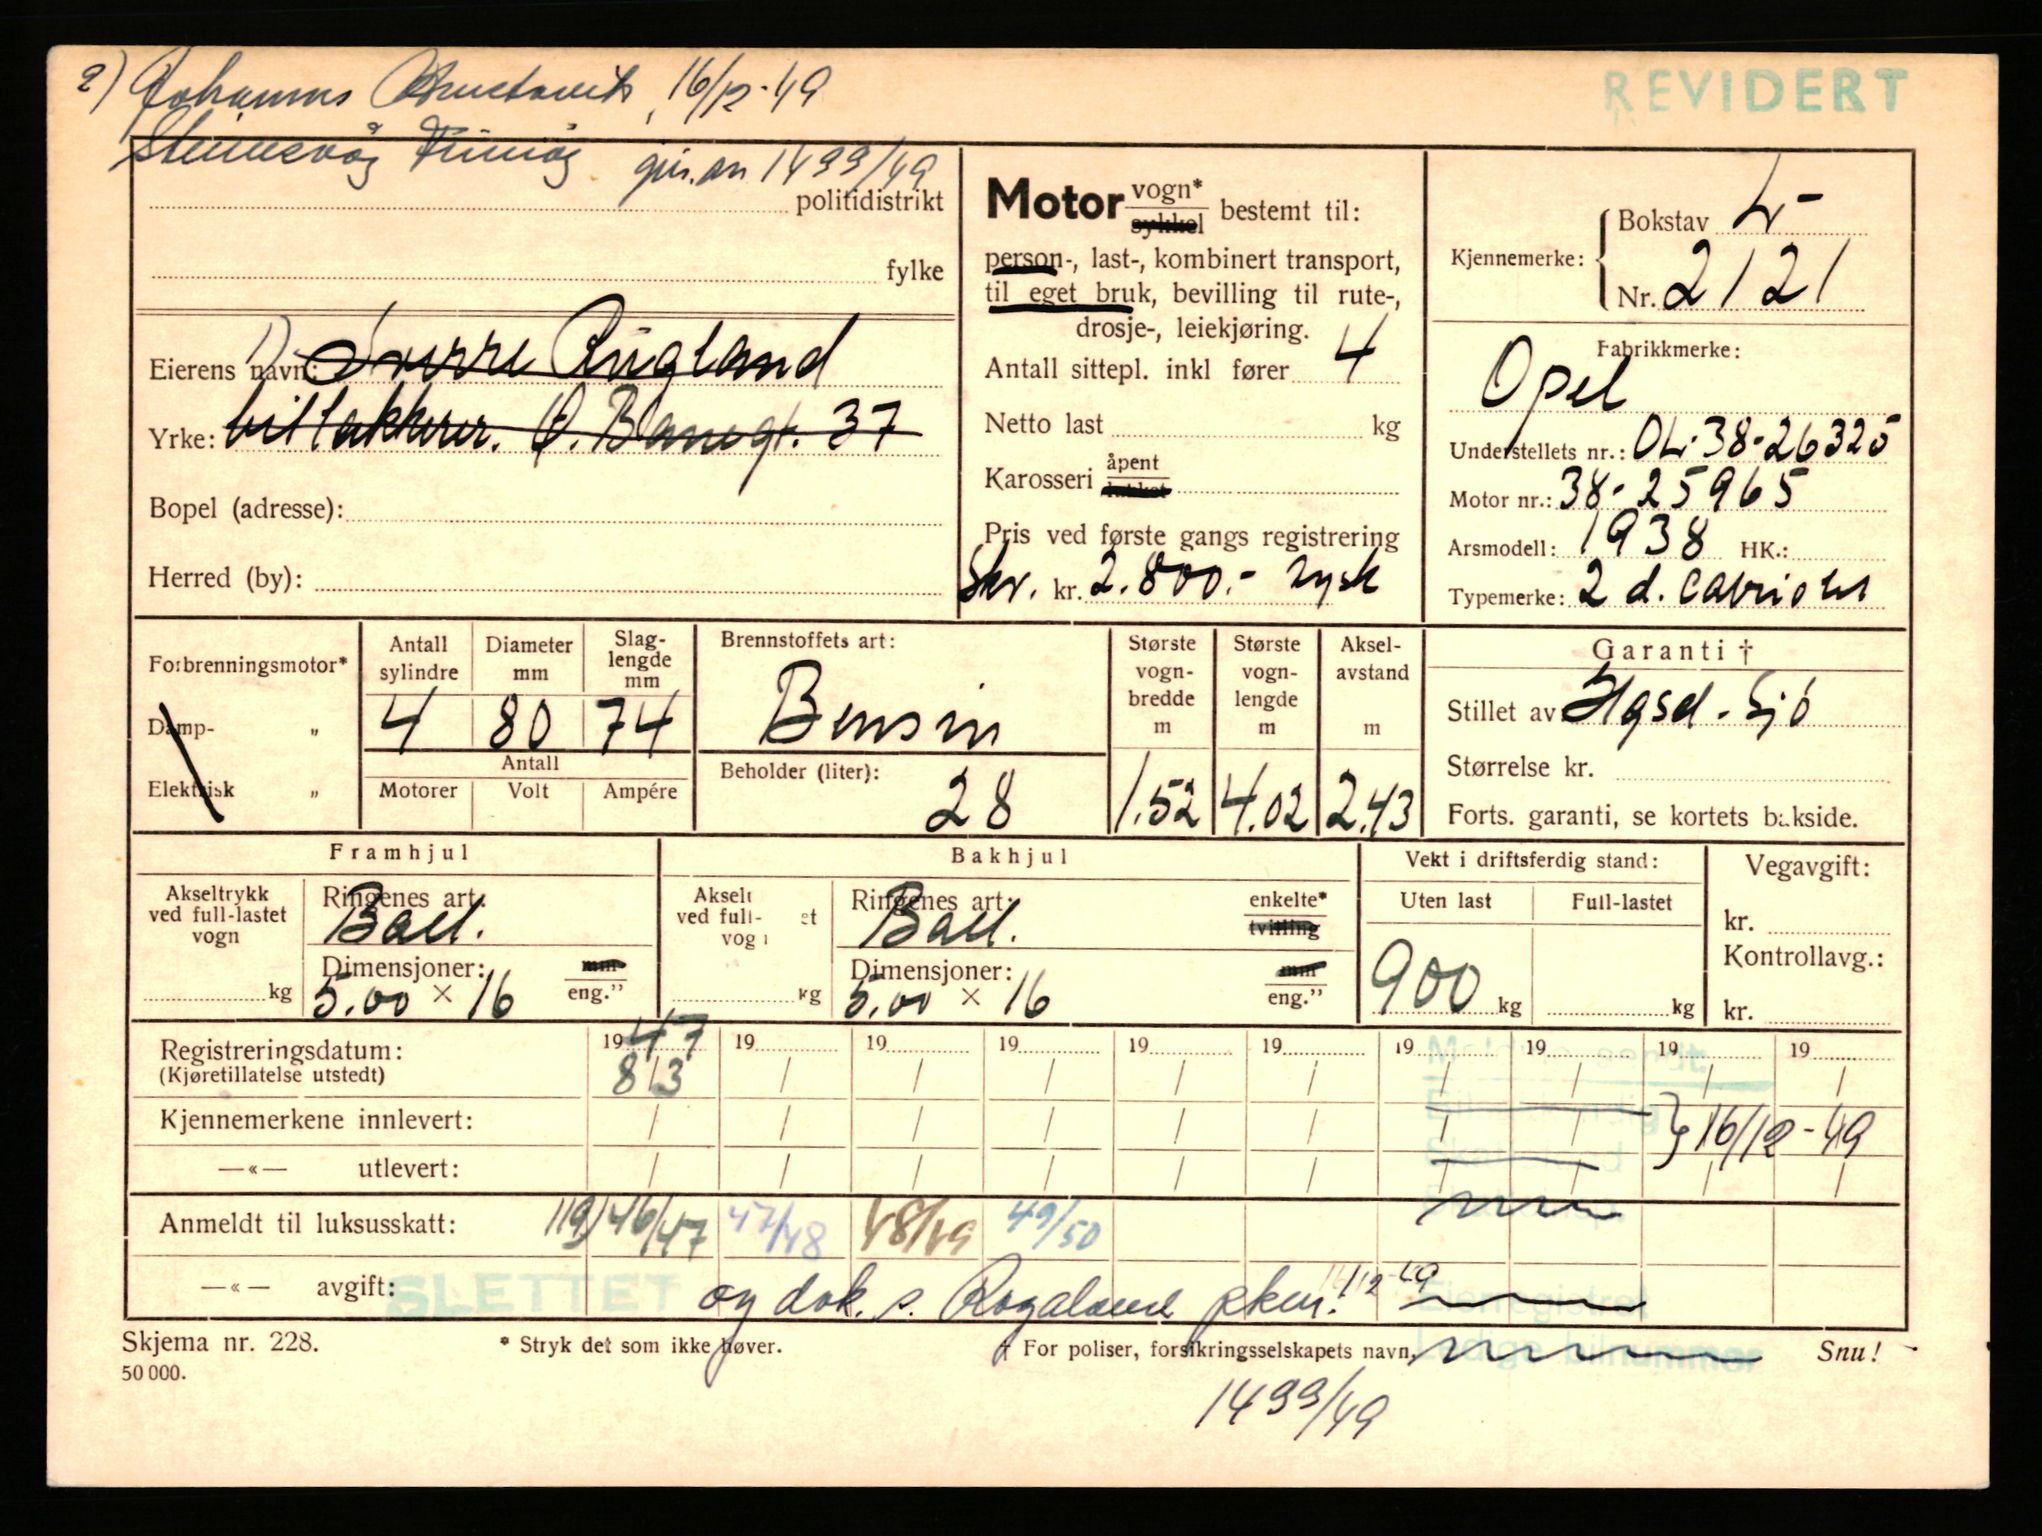 REVIDERT
2) Johannes 16/12-49
1499/49
politidistrikt
fylke
Eierens navn: 1) Sverre Rugland
Yrke: billakkerer. Ø. Banegt. 37
Bopel (adresse):
Herred (by):
Motor vogn* sykkel bestemt til:
person-, last-, kombinert transport,
til eget bruk, bevilling til rute-,
drosje-, leiekjøring.
Antall sittepl. inkl fører 4
Netto last kg
Karosseri åpent lukket
Pris ved første gangs registrering
Skr. kr. 2.800.- tysk
Kjennemerke: Bokstav L-
Nr. 2121
Fabrikkmerke:
Opel
Understellets nr.: OL-38-26325
Motor nr.: 38-25965
Arsmodell: 1938 HK.:
Typemerke: 2 d. Cabriolet
Forbrenningsmotor*
Damp- „
Elektrisk „
Antall sylindre 4
Diameter mm 80
Slaglengde mm 74
Antall
Motorer Volt Ampére
Brennstoffets art:
Bensin
Beholder (liter):
28
Største vogn-bredde m 1.52
Største vogn-lengde m 4.02
Aksel-avstand m 2.43
Garanti †
Stillet av Hgsd. Sjø
Størrelse kr.
Forts. garanti, se kortets bakside.
Framhjul
Akseltrykk ved full-lastet vogn kg
Ringenes art:
Ball.
Dimensjoner: mm eng.”
5.00 × 16
Bakhjul
Akselt ved full- et vogn kg
Ringenes art: enkelte* tvilling
Ball.
Dimensjoner: mm eng.”
5.00 × 16
Vekt i driftsferdig stand:
Uten last Full-lastet
900 kg kg
Vegavgift:
kr.
Kontrollavg.:
kr.
Registreringsdatum: 1947 19 19 19 19 19 19 19 19 19
(Kjøretillatelse utstedt) 8/3
Kjennemerkene innlevert: 16/12-49
—«— utlevert:
Anmeldt til luksusskatt: 119/46/47 47/48 48/49 49/50
—«— avgift: SLETTET og dok. s. Rogaland pkm. 12-49
Eierregistret
Ledige bilnummer
Skjema nr. 228.
50 000.
* Stryk det som ikke høver.
† For poliser, forsikringsselskapets navn,
Snu!
1499/49